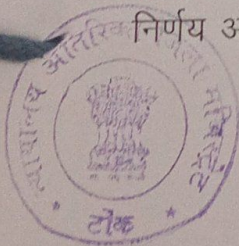 निर्णय अ
न्यायालय अतिरिक्त जिला मजिस्ट्रेट
* टोंक *